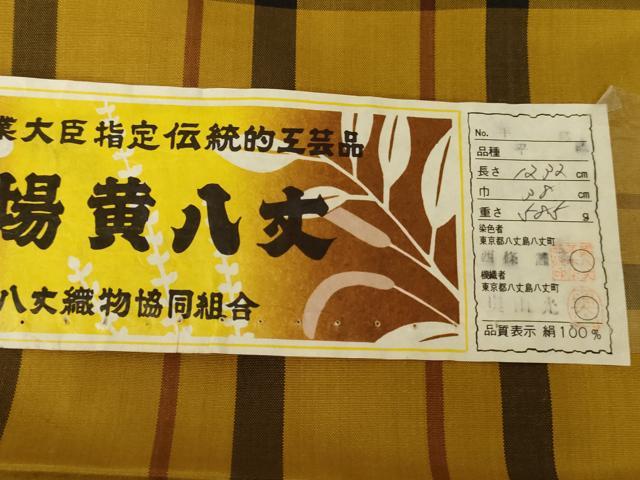 業大臣指定伝統的工芸品
場黄八丈
八丈織物協同組合
No.
品種
長さ 1232 cm
巾 38 cm
重さ 585 g
染色者
東京都八丈島八丈町
機織者
東京都八丈島八丈町
品質表示 絹100%